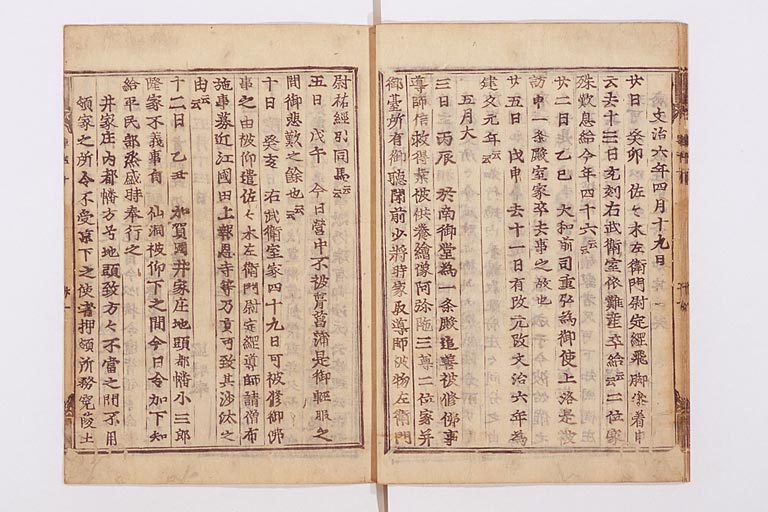 文治六年四月十九日
廿日 癸卯 佐々木左衛門尉定經飛脚參着申
云去十三日丑刻右武衛室依難産卒給云云二位家
殊歎息給今年四十六云云
廿二日 乙巳 大和前司重弘為御使上洛是
訪申一条殿室家卒去事之故也
廿五日 戊申 去十一日有改元改文治六年為
建久元年云云
五月大
三日 丙辰 於南御堂為一条殿追善被修佛事
導師信救得業被供養繪像阿弥陁三尊二位家并
御臺所有御聴聞前少將時家取導師被物左衛門
尉祐經別同馬云云
五日 戊午 今日營中不被葺菖蒲是御輕服之
間御悲歎之餘也云云
十日 癸亥 右武衛室家四十九日可被修御佛
事之由被仰遣佐々木左衛門尉定經導師請僧布
施事募近江國田上報恩寺等乃貢可致其沙汰之
由云云
十二日 乙丑 加賀國井家庄地頭都幡小三郎
隆家不義事有 仙洞被仰下之間今日令加下知
給平民部烝盛時奉行之
井家庄内都幡方号地頭致方々不當之間不用
領家之所令不受京下之使者押領所務究陵土